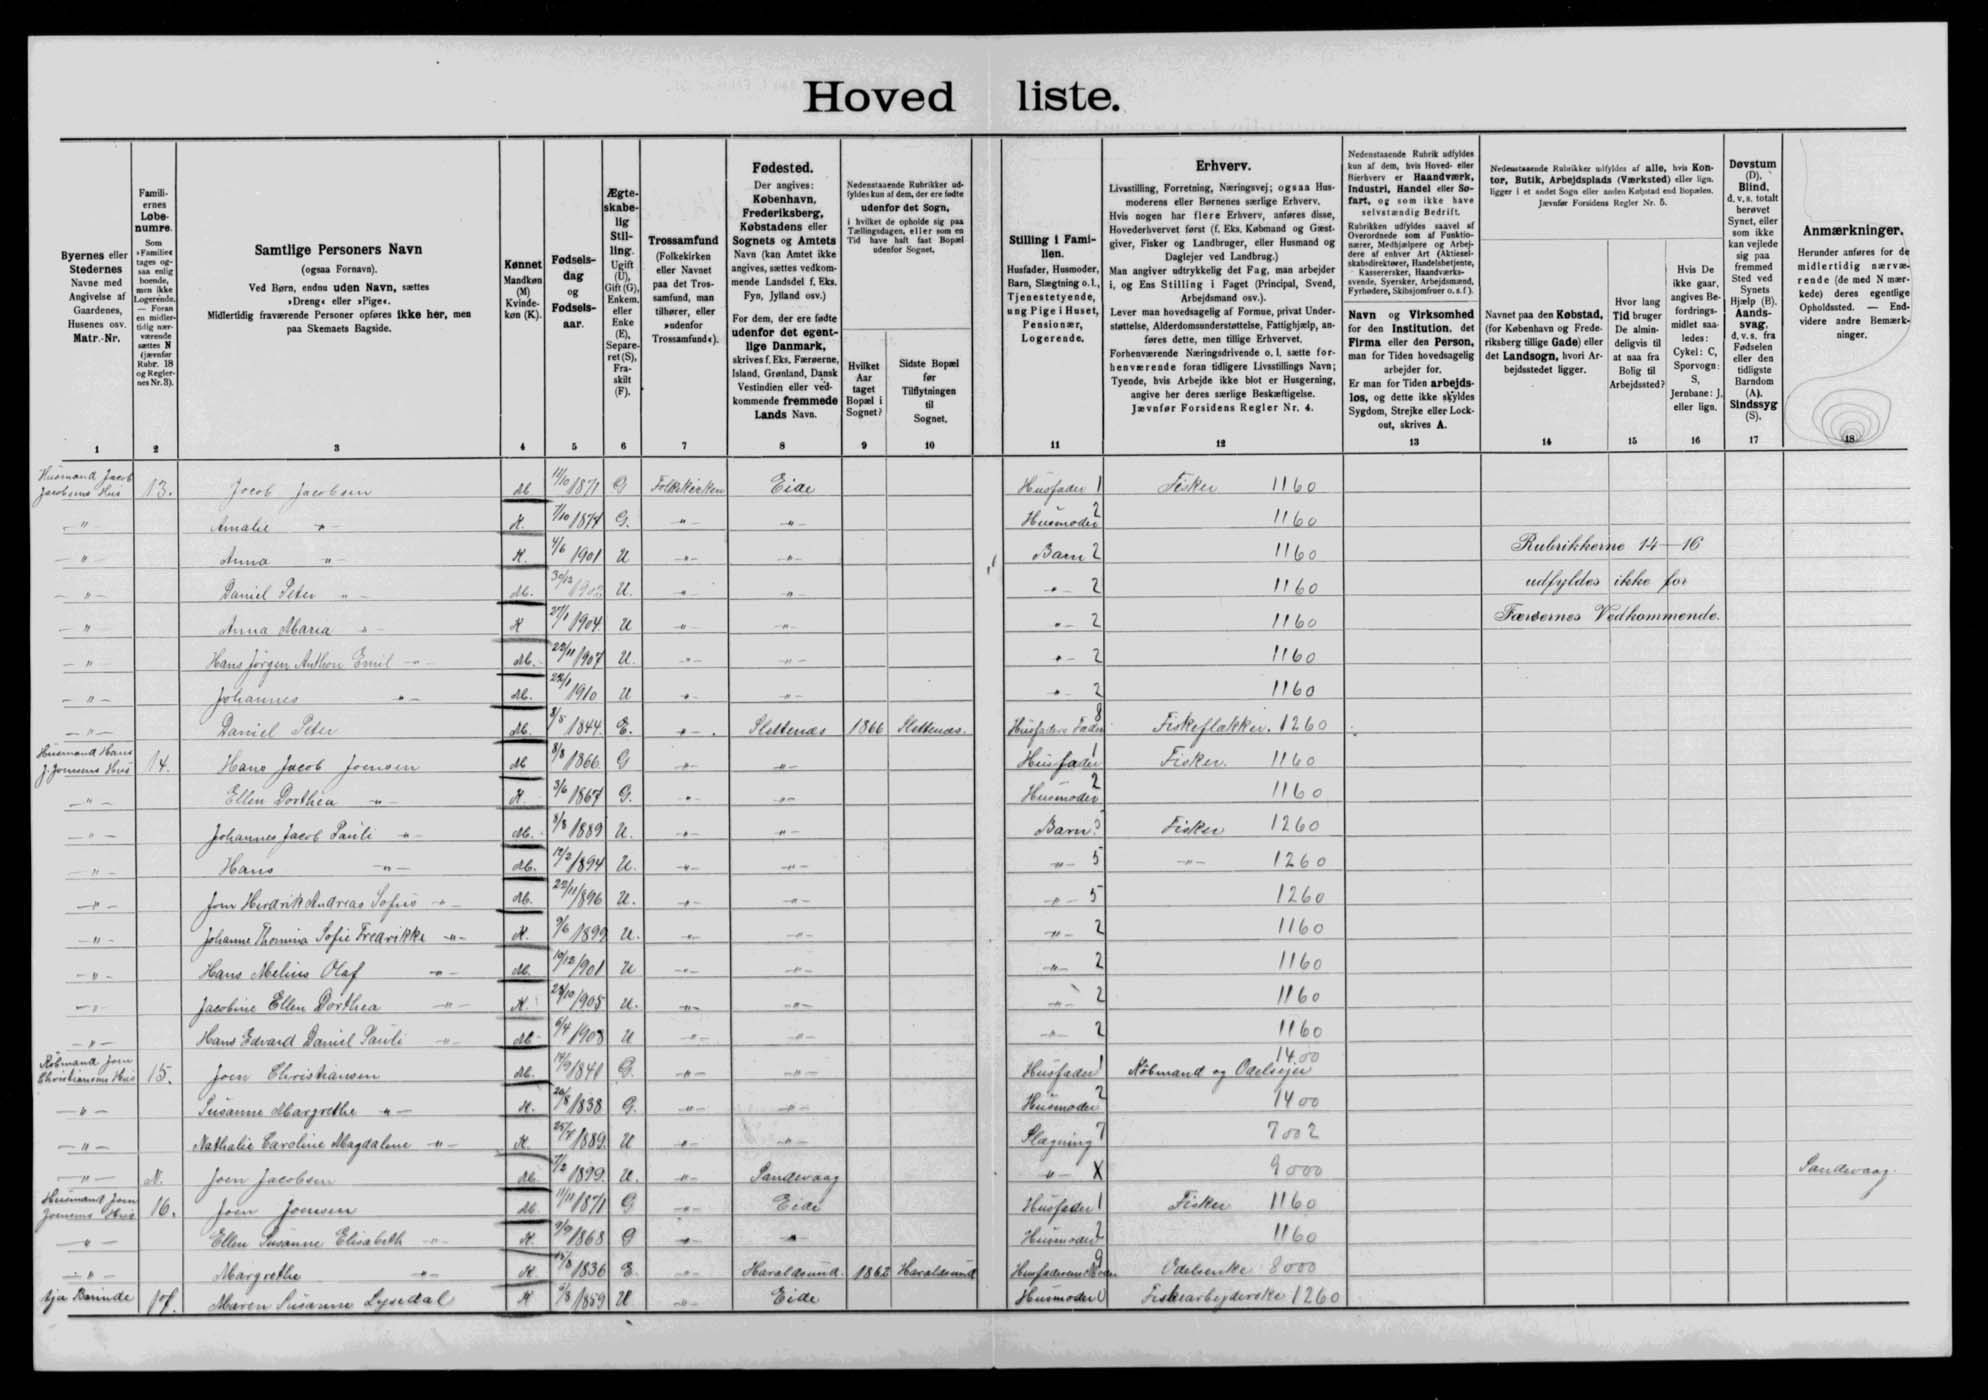 Hoved liste.
Byernes eller Stedernes Navne med Angivelse af Gaardenes, Husenes osv. Matr.-Nr.
Familiernes Løbenumre. Som »Familie« tages ogsaa enlig boende, men ikke Logerende. — Foran en midlertidig nærværende sættes N (jævnfør Rubr. 18 og Regler- nes Nr. 3).
Samtlige Personers Navn
(ogsaa Fornavn).
Ved Børn, endnu uden Navn, sættes
»Dreng« eller »Pige«.
Midlertidig fraværende Personer opføres ikke her, men
paa Skemaets Bagside.
Kønnet Mandkøn (M) Kvindekøn (K).
Fødselsdag og Fødselsaar.
Ægteskabelig Stilling. Ugift (U), Gift (G), Enkem. eller Enke (E), Separeret (S), Fraskilt (F).
Trossamfund (Folkekirken eller Navnet paa det Trossamfund, man tilhører, eller »udenfor Trossamfund«).
Fødested.
Der angives:
København, Frederiksberg, Købstadens eller Sognets og Amtets Navn (kan Amtet ikke angives, sættes vedkommende Landsdel f. Eks. Fyn, Jylland osv.)
For dem, der ere fødte udenfor det egentlige Danmark, skrives f. Eks. Færøerne, Island, Grønland, Dansk Vestindien eller vedkommende fremmede Lands Navn.
Nedenstaaende Rubrikker udfyldes kun af dem, der ere fødte udenfor det Sogn, i hvilket de opholde sig paa Tællingsdagen, eller som en Tid have haft fast Bopæl udenfor Sognet.
Hvilket Aar taget Bopæl i Sognet?
Sidste Bopæl før Tilflytningen til Sognet.
Stilling i Familien.
Husfader, Husmoder, Barn, Slægtning o. l., Tjenestetyende, ung Pige i Huset, Pensionær, Logerende.
Erhverv.
Livsstilling, Forretning, Næringsvej; ogsaa Husmoderens eller Børnenes særlige Erhverv.
Hvis nogen har flere Erhverv, anføres disse, Hovederhvervet først (f. Eks. Købmand og Gæstgiver, Fisker og Landbruger, eller Husmand og Daglejer ved Landbrug.)
Man angiver udtrykkelig det Fag, man arbejder i, og Ens Stilling i Faget (Principal, Svend, Arbejdsmand osv.).
Lever man hovedsagelig af Formue, privat Understøttelse, Alderdomsunderstøttelse, Fattighjælp, anføres dette, men tillige Erhvervet.
Forhenværende Næringsdrivende o. l. sætte forhenværende foran tidligere Livsstillings Navn; Tyende, hvis Arbejde ikke blot er Husgerning, angive her deres særlige Beskæftigelse.
Jævnfør Forsidens Regler Nr. 4.
Nedenstaaende Rubrik udfyldes kun af dem, hvis Hoved- eller Bierhverv er Haandværk, Industri, Handel eller Søfart, og som ikke have selvstændig Bedrift.
Rubrikken udfyldes saavel af Overordnede som af Funktionærer, Medhjælpere og Arbejdere af enhver Art (Aktieselskabsdirektører, Handelsbetjente, Kasserersker, Haandværkssvende, Syersker, Arbejdsmænd, Fyrbødere, Skibsjomfruer o. s. f.).
Navn og Virksomhed for den Institution, det Firma eller den Person, man for Tiden hovedsagelig arbejder for.
Er man for Tiden arbejdsløs, og dette ikke skyldes Sygdom, Strejke eller Lockout, skrives A.
Nedenstaaende Rubrikker udfyldes af alle, hvis Kontor, Butik, Arbejdsplads (Værksted) eller lign. ligger i et andet Sogn eller anden Købstad end Bopælen.
Jævnfør Forsidens Regler Nr. 5.
Navnet paa den Købstad, (for København og Frederiksberg tillige Gade) eller det Landsogn, hvori Arbejdsstedet ligger.
Hvor lang Tid bruger De almindeligvis til at naa fra Bolig til Arbejdssted?
Hvis De ikke gaar, angives Befordringsmidlet saaledes: Cykel: C, Sporvogn: S, Jernbane: J, eller lign.
Døvstum (D). Blind, d. v. s. totalt berøvet Synet, eller som ikke kan vejlede sig paa fremmed Sted ved Synets Hjælp (B). Aandssvag, d. v. s. fra Fødselen eller den tidligste Barndom (A). Sindssyg (S).
Anmærkninger.
Herunder anføres for de midlertidig nærværende (de med N mærkede) deres egentlige Opholdssted. — Endvidere andre Bemærkninger.
1 2 3 4 5 6 7 8 9 10 11 12 13 14 15 16 17 18
Husmand Jacob Jacobsens Hus 13. Jacob Jacobsen M 11/10 1871 G Folkekirken Eide Husfader 1 Fisker 1160
-"- Amalie -"- K. 7/10 1874 G. -"- -"- Husmoder 2 1160
-"- Anna -"- K. 4/6 1901 U -"- -"- Barn 2 1160 Rubrikkerne 14-16
-"- Daniel Peter -"- M. 30/12 1902 U. -"- -"- -"- 2 1160 udfyldes ikke for
-"- Anna Maria -"- K 27/1 1904. U -"- -"- -"- 2 1160 Færøernes Vedkommende.
-"- Hans Jørgen Anthon Emil -"- M. 22/11 1907 U. -"- -"- -"- 2 1160
-"- Johannes -"- M. 1910 U -"- -"- -"- 2 1160
-"- Daniel Peter M. 3/5 1844. E. -"- Slettenæs 1866 Slettenæs. Husfaders Fader 8 Fiskeflækker. 1260
Husmand Hans J. Joensens Hus 14. Hans Jacob Joensen M 8/8 1866 G -"- -"- Husfader 1 Fisker. 1160
-"- Ellen Dorthea -"- K. 3/6 1867 G. -"- -"- Husmoder 2 1160
-"- Johannes Jacob Pauli -"- M. 8/8 1889 U. -"- -"- Barn 5 Fisker 1260
-"- Hans -"- M. 12/2 1894 U. -"- -"- -"- 5 -"- 1260
-"- Joen Hendrik Andreas Sofus -"- M. 22/11 1896 U. -"- -"- -"- 5 1260
-"- Johanne Thomina Sofie Fredrikke -"- K. 9/6 1899 U. -"- -"- -"- 2 1160
-"- Hans Melius Olaf -"- M. 10/12 1901 U -"- -"- -"- 2 1160
-"- Jacobine Ellen Dorthea -"- K. 1905 U. -"- -"- -"- 2 1160
-"- Hans Edvard Daniel Pauli -"- M 6/4 1908 U -"- -"- -"- 2 1160
Købmand Joen Christiansens Hus 15. Joen Christiansen M. 14/9 1841 G. -"- -"- Husfader 1 Købmand og Odelsejer 1400
-"- Susanne Margrethe -"- K. 20/8 1838 G. -"- -"- Husmoder 2 1400
-"- Nathalie Caroline Magdalene -"- K. 1889. U -"- -"- Slægtning 7 7002
-"- N. Joen Jacobsen M. 7/2 1899. U. -"- Sandevaag -"- X 9000 Sandevaag.
Husmand Joen Joensens Hus 16. Joen Joensen M. 11/11 1871 G -"- Eide Husfader 1 Fisker 1160
-"- Ellen Susanne Elisabeth -"- K. 9/9 1868 G -"- -"- Husmoder 2 1160
-"- Margrethe -"- K. 1836 E. -"- Haraldsund. 1862 Haraldsund Husfaderens Moder 9 Odelsenke 8000
17. Maren Susanne Lysedal K 1859 U. -"- Eide Husmoder 0 Fiskearbejderske 1260